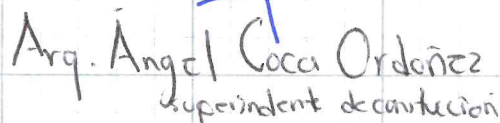 Arq. Ángel Coca Ordoñez
superindent de constucion